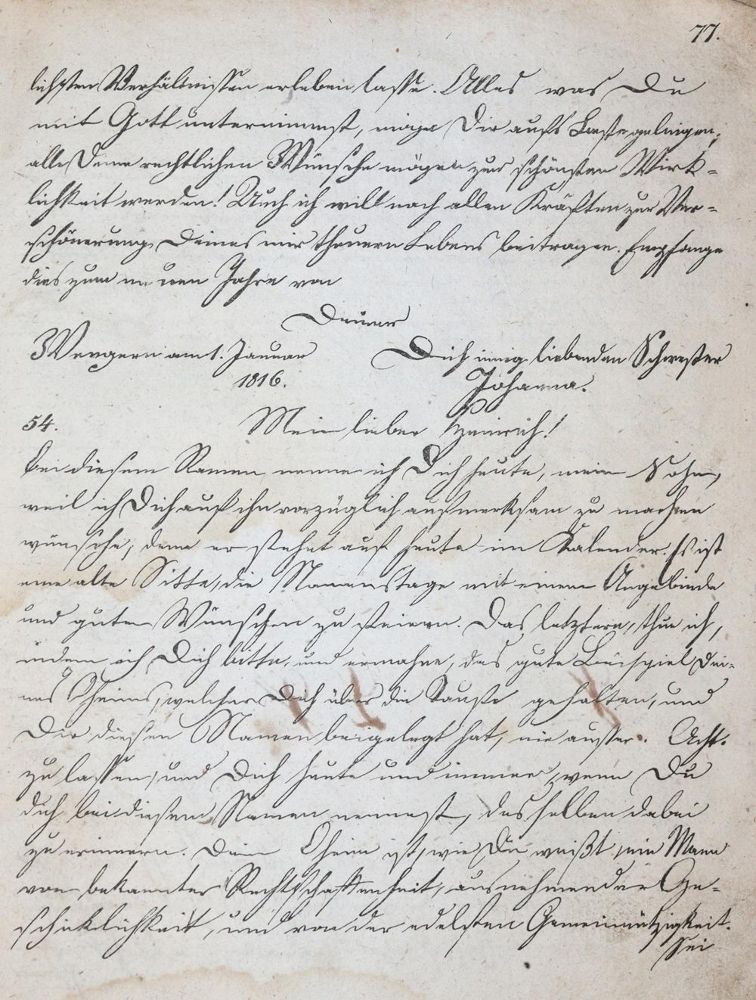 77.
lichsten Verhältnissen erleben lasse. Alles was Du
mit Gott unternimmst, möge Dir aufs Beste gelingen,
alle Deine rechtlichen Wünsche mögen zur schönsten Wirk-
lichkeit werden! Auch ich will nach allen Kräften zur Ver-
schönerung Deines mir theuern Lebens beitragen. Empfange
dies zum neuen Jahre von
Deiner
Wergern am 1. Januar Dich innig liebenden Schwester
1816. Johanna.
54. Mein lieber Heinrich!
Bei diesem Namen nenne ich Dich heute, mein Sohn,
weil ich Dich auf ihn vorzüglich aufmerksam zu machen
wünsche, denn er stehet auf heute im Kalender. Es ist
eine alte Sitte, die Namenstage mit einem Angebinde
und guten Wünschen zu feiern. Das letztere, thue ich,
indem ich Dich bitte, und ermahne, das gute Beispiel Dei-
nes Oheims, welcher Dich über die Taufe gehalten, und
Dir diesen Namen beigelegt hat, nie ausser Acht
zu lassen, und Dich heute und immer, wenn Du
dich bei diesem Namen nennest, desselben dabei
zu erinnern. Dein Oheim ist, wie Du weißt, ein Mann
von bekannter Rechtschaffenheit, ausnehmender Ge-
schicklichkeit, und von der edelsten Gemeinnützigkeit.
Sei